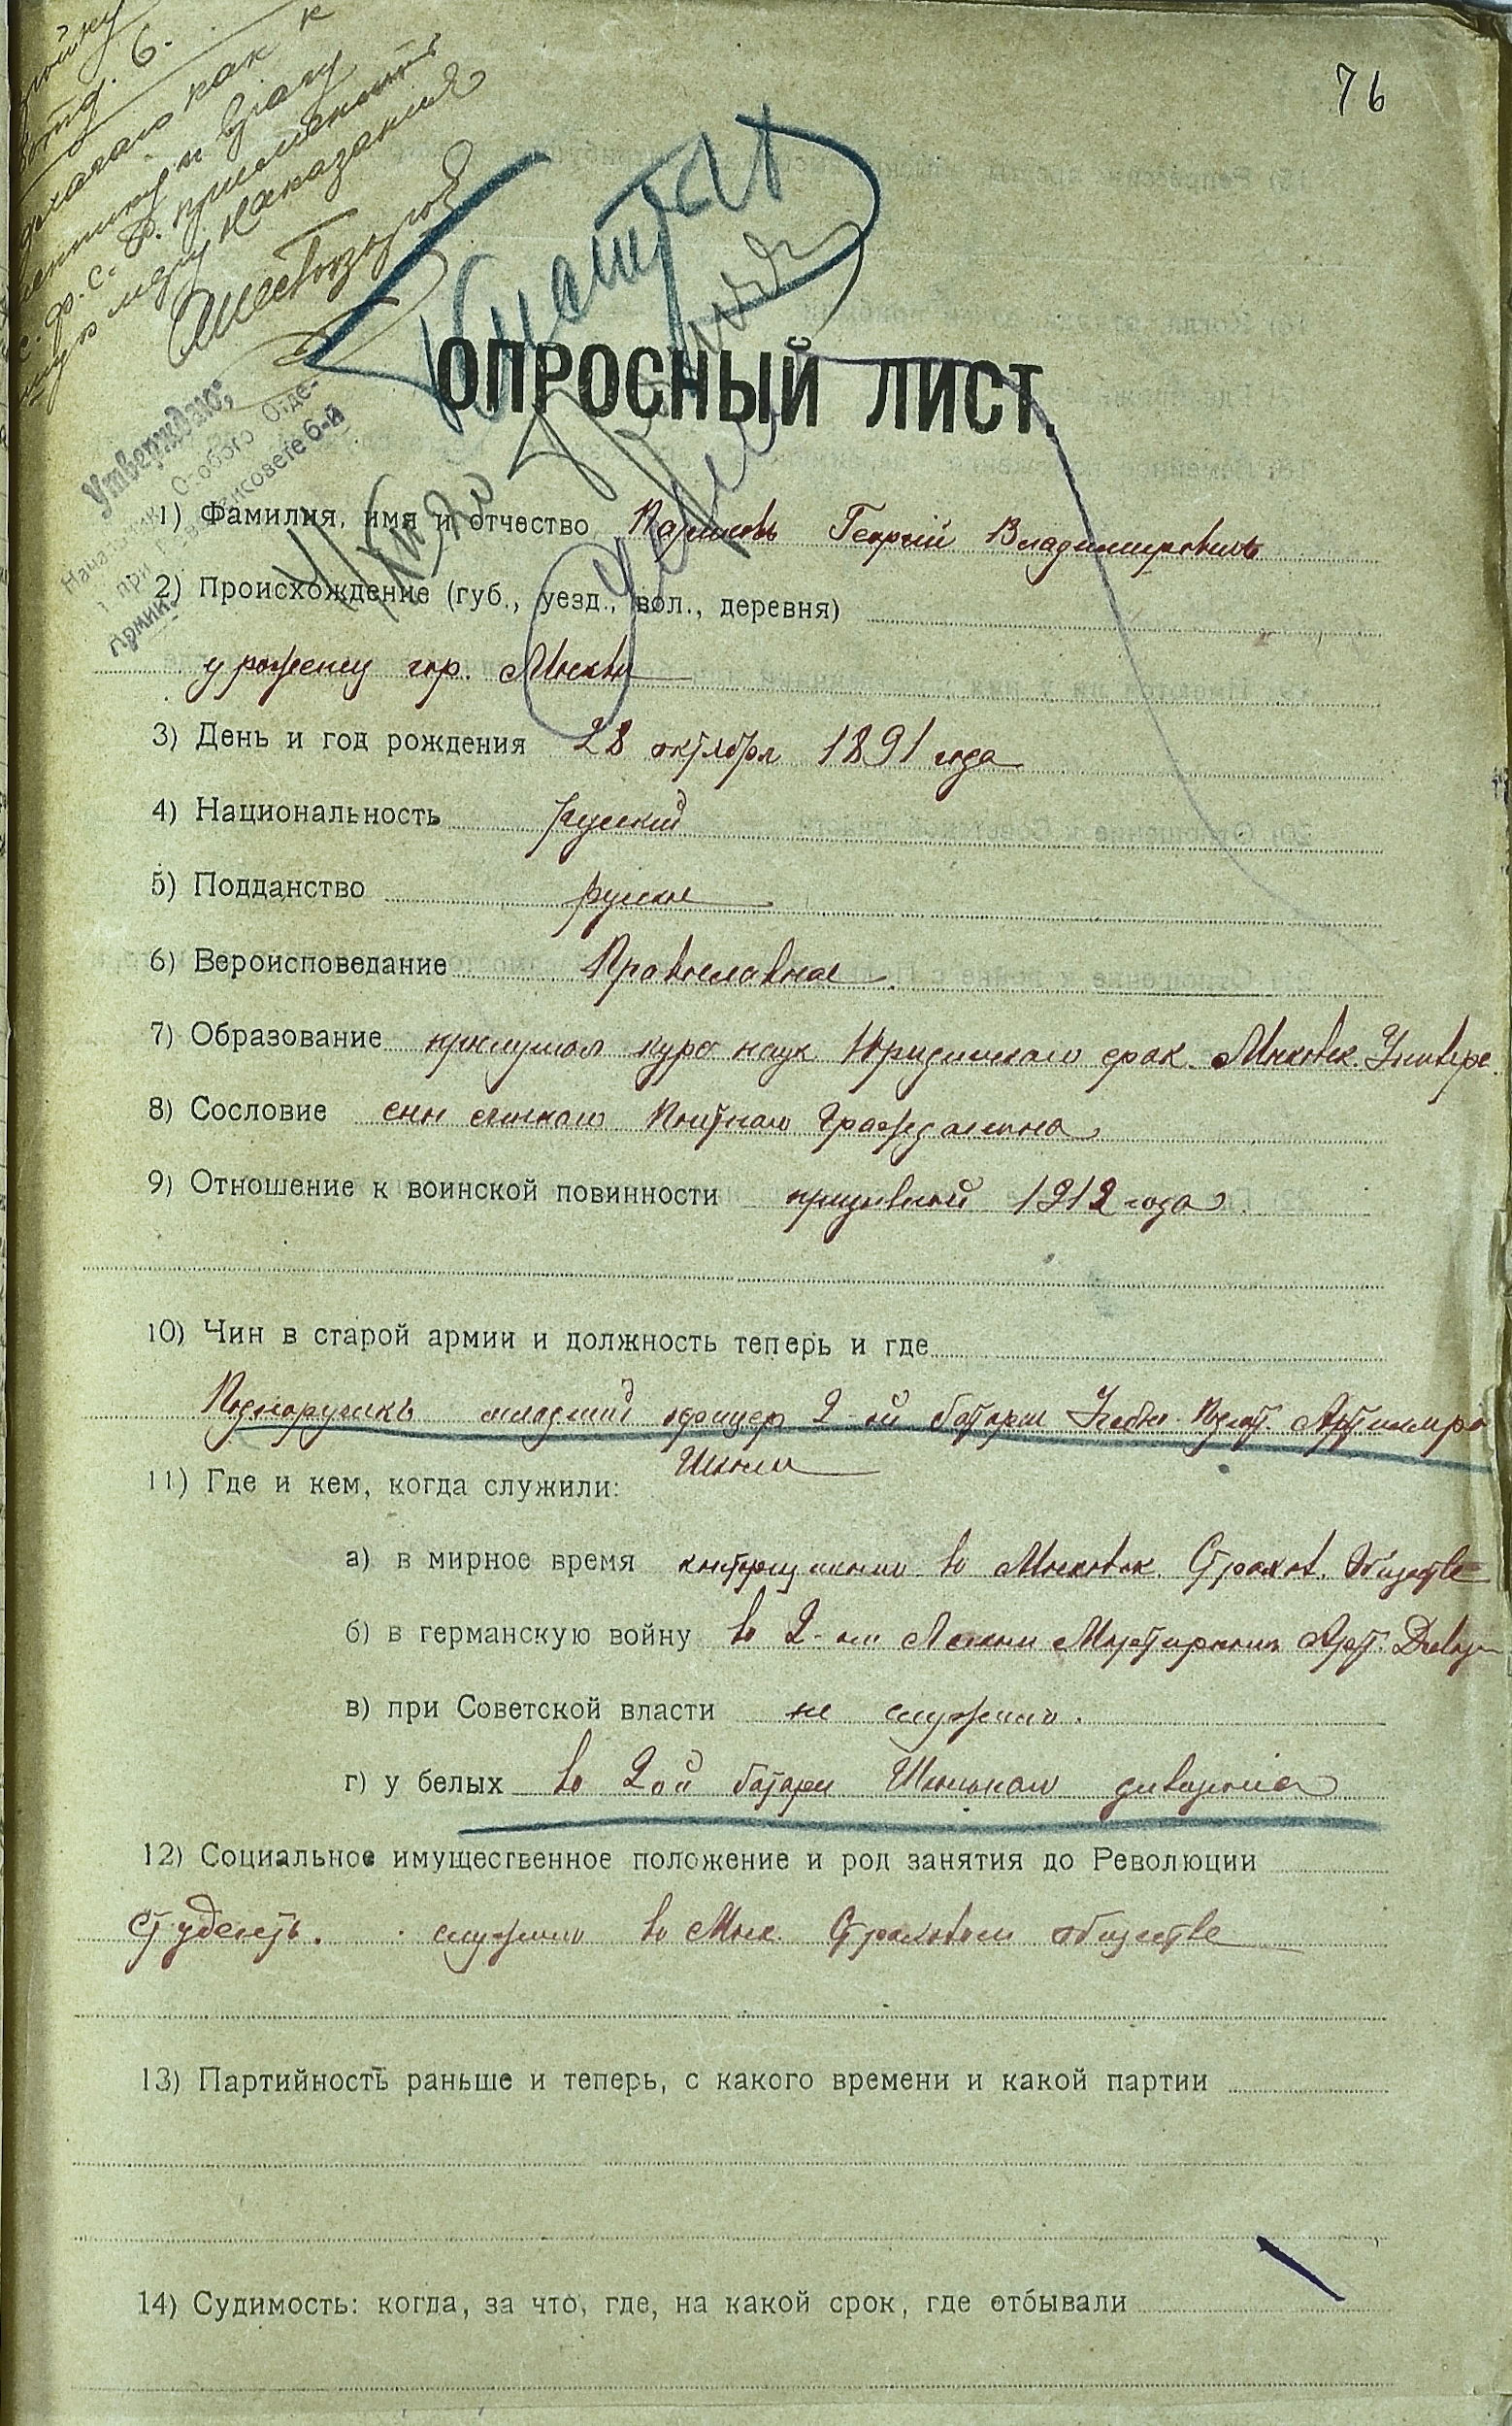 76
как к
и врагу
С. Ф. С. Р. применить
меру наказания
Утверждаю:
Начальник Особого Отде-
при Реввоенсовете 6-й
Армии.
ОПРОСНЫЙ ЛИСТ.
1) Фамилия, имя и отчество Георгий Владимировичъ
2) Происхождение (губ., уезд., вол., деревня)
уроженец гор. Москвы
3) День и год рождения 28 октября 1891 года
4) Национальность русский
5) Подданство русское
6) Вероисповедание Православное
7) Образование прослушал курс наук Юридическаго фак. Московск. Универс.
8) Сословие сын личнаго Почётнаго Гражданина
9) Отношение к воинской повинности призывной 1912 года
10) Чин в старой армии и должность теперь и где
Подпоручикъ младший офицер 2-ой батареи Учебно-Подгот. Артиллер.
Школы
11) Где и кем, когда служили:
а) в мирное время конторщиком во Московск. Страхов. Обществе
б) в германскую войну во 2-ом Мортирном Арт. Дивиз
в) при Советской власти не служилъ.
г) у белых во 2ой батареи Школьнаго дивизиона
12) Социальное имущественное положение и род занятия до Революции
Студентъ. служил во Моск. Страховом обществе
13) Партийность раньше и теперь, с какого времени и какой партии
14) Судимость: когда, за что, где, на какой срок, где отбывали